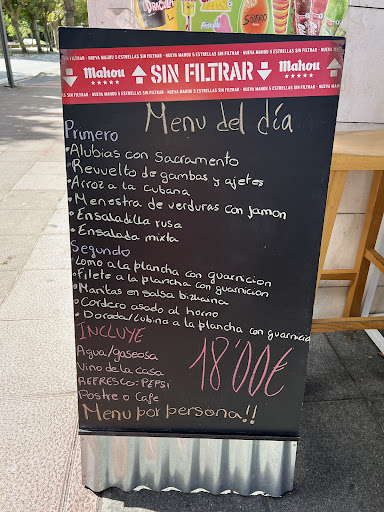 DRÁCULA
SOLERO
NUEVA MAHOU 5 ESTRELLAS SIN FILTRAR · NUEVA MAHOU 5 ESTRELLAS SIN FILTRAR
Mahou SIN FILTRAR Mahou
NUEVA MAHOU 5 ESTRELLAS SIN FILTRAR · NUEVA MAHOU 5 ESTRELLAS SIN FILTRAR
Menu del día
Primero
•Alubias con Sacramento
•Revuelto de gambas y ajetes
•Arroz a la cubana
•Menestra de verduras con jamon
•Ensaladilla rusa
•Ensalada mixta
Segundo
•Lomo a la plancha con guarnicion
•Filete a la plancha con guarnicion
•Manitas en salsa bizkaina
•Cordero asado al horno
•Dorada/Lubina a la plancha con guarnicion
INCLUYE
Agua/gaseosa
Vino de la casa
REFRESCO: PEPSI
Postre o Cafe
18'00€
Menu por persona!!